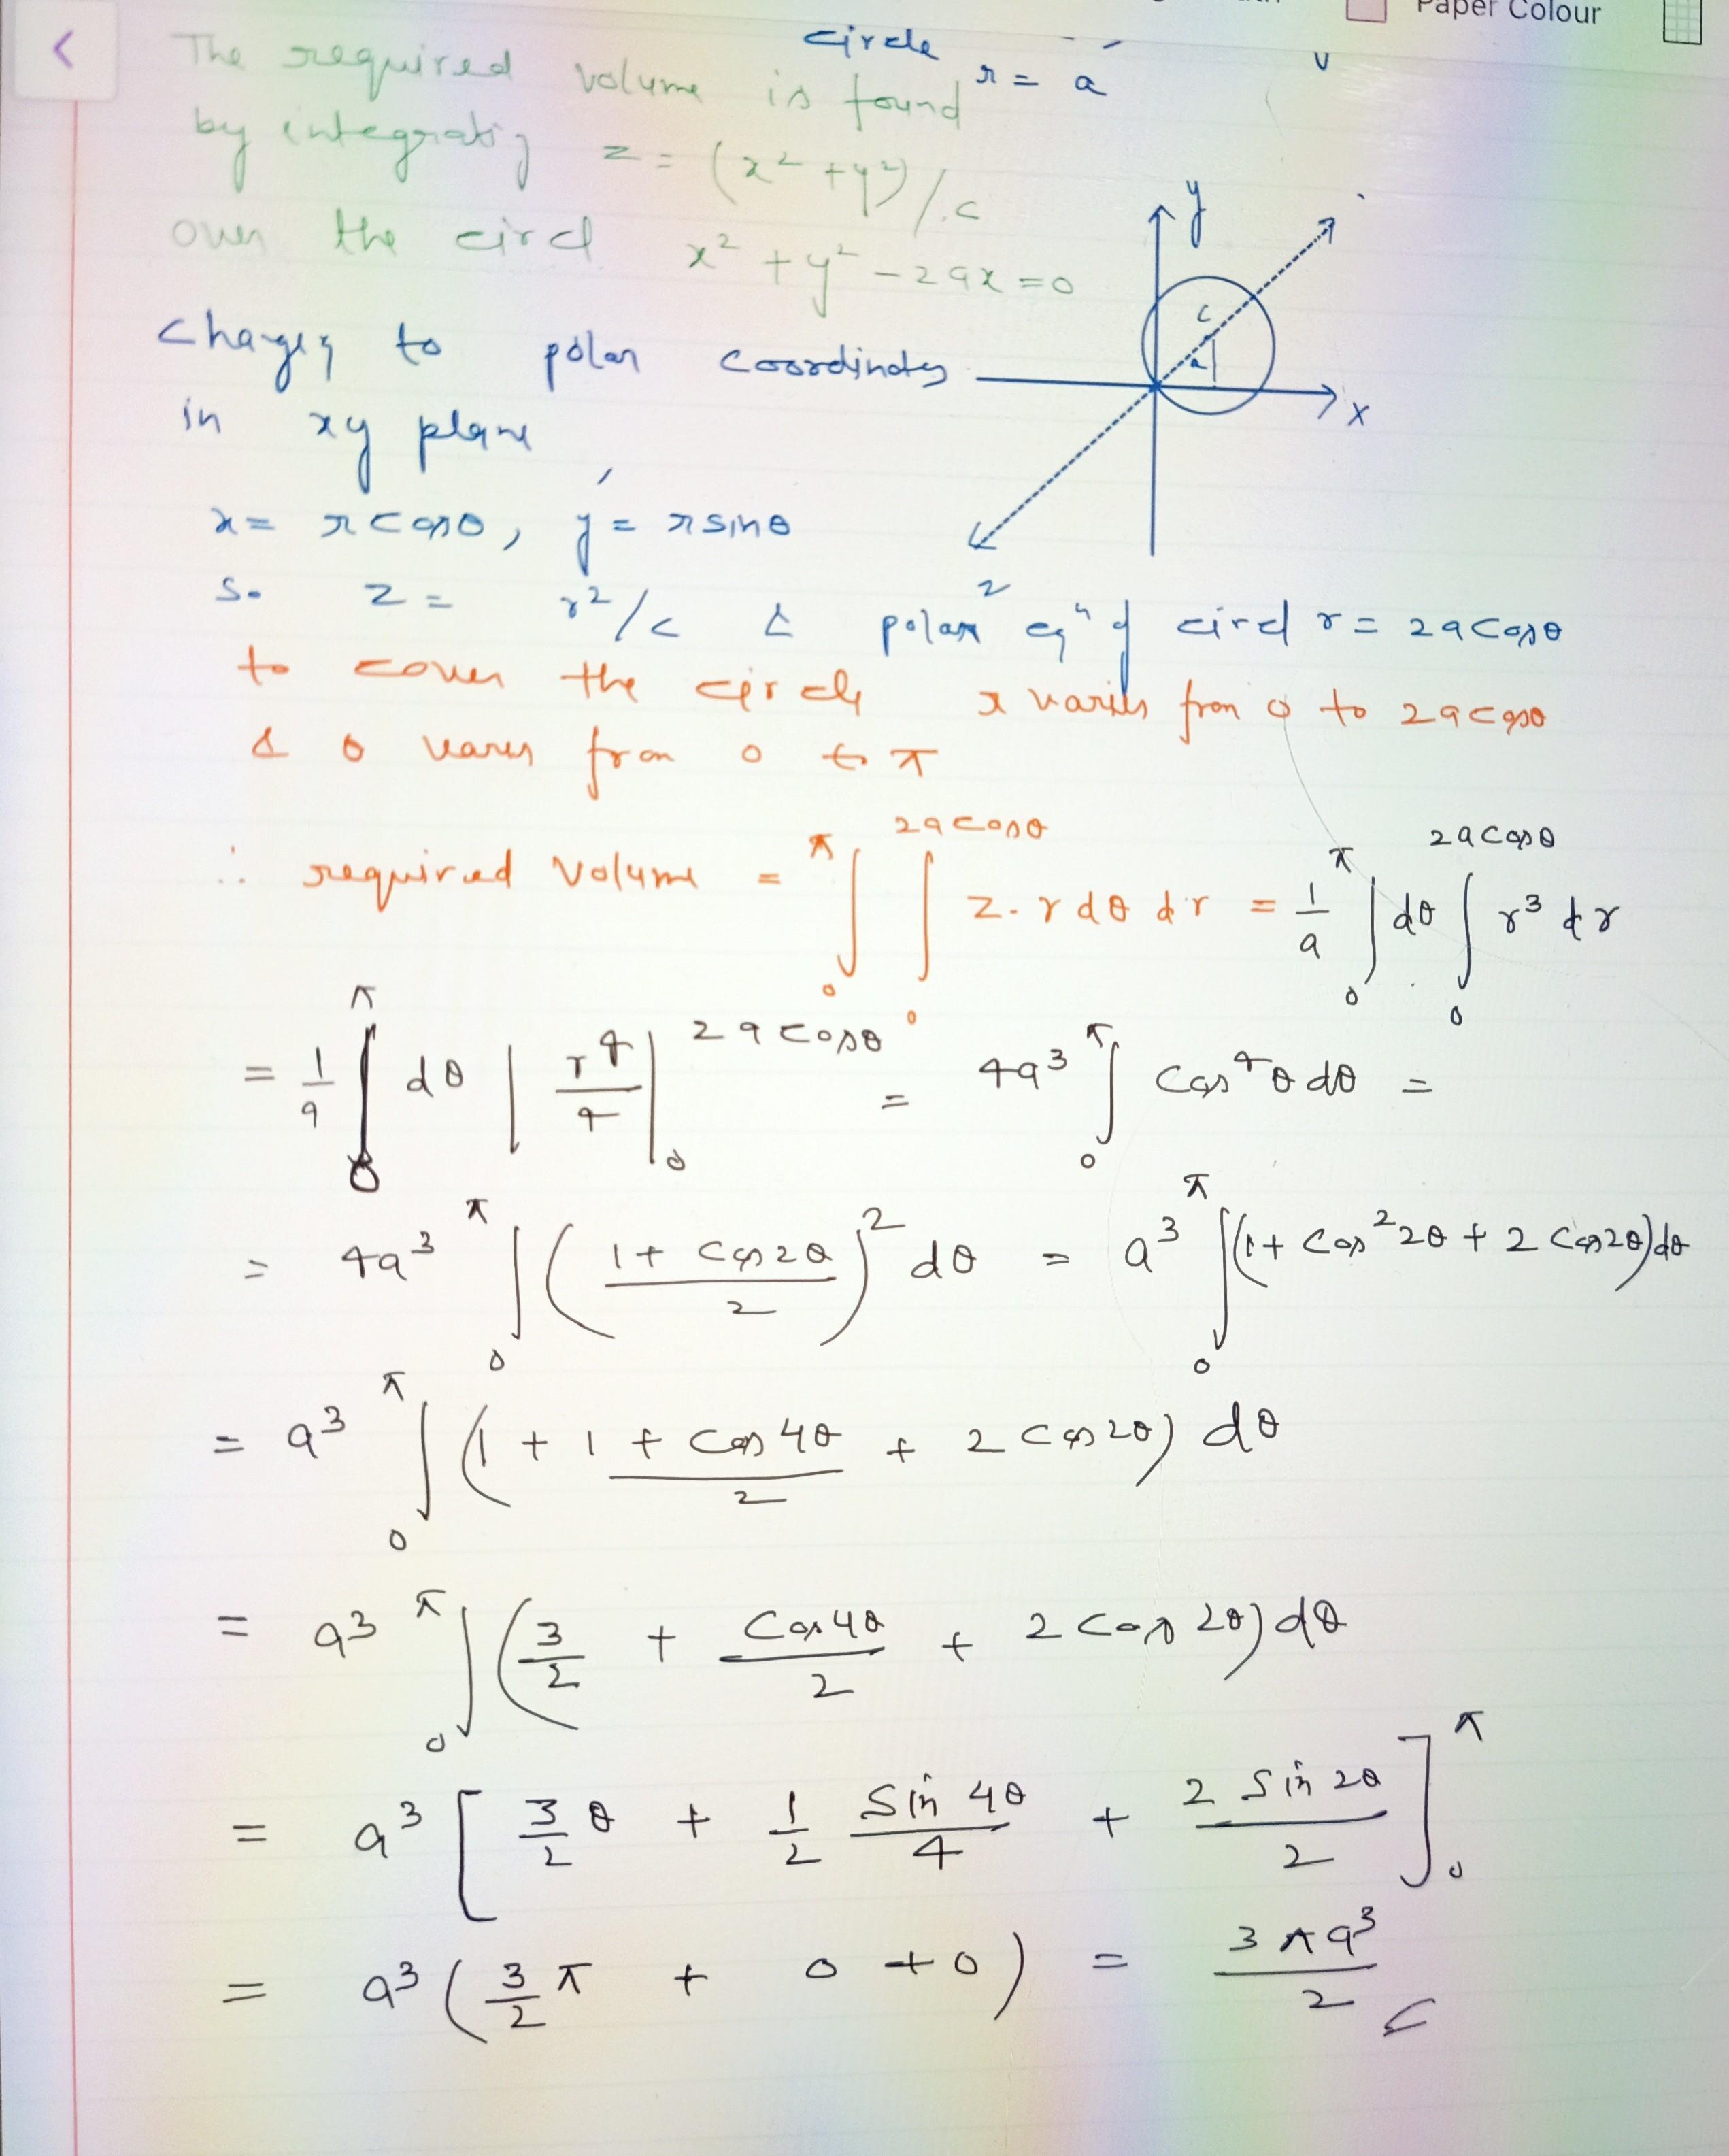 Paper Colour
circle r = a
The required volume is found
by integratig z = (x² + y²)/.c
over the circl x² + y² - 2ax = 0
y
c
a
x
z
Changig to polar coordinates
in xy plane
x = r cosθ, y = r sinθ
So z = r²/c & polar eqⁿ of circl r = 2a cosθ
to cover the circle r varies from 0 to 2a cosθ
& θ vares from 0 to π
∴ required volume = ∫₀^π ∫₀^{2a cosθ} z. r dθ dr = 1/a ∫₀^π dθ ∫₀^{2a cosθ} r³ dr
= 1/a ∫₀^π dθ | r⁴/4 |₀^{2a cosθ} = 4a³ ∫₀^π cos⁴θ dθ =
= 4a³ ∫₀^π ((1 + cos2θ)/2)² dθ = a³ ∫₀^π (1 + cos²2θ + 2 cos2θ) dθ
= a³ ∫₀^π (1 + (1 + cos4θ)/2 + 2 cos2θ) dθ
= a³ ∫₀^π (3/2 + cos4θ/2 + 2 cos2θ) dθ
= a³ [3/2 θ + 1/2 sin4θ/4 + 2 sin2θ/2]₀^π
= a³ (3/2 π + 0 + 0) = 3πa³/2